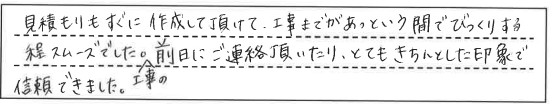 見積もりもすぐに作成して頂けて、工事までがあっという間でびっくりする
程スムーズでした。工事の前日にご連絡頂いたり、とてもきちんとした印象で
信頼できました。